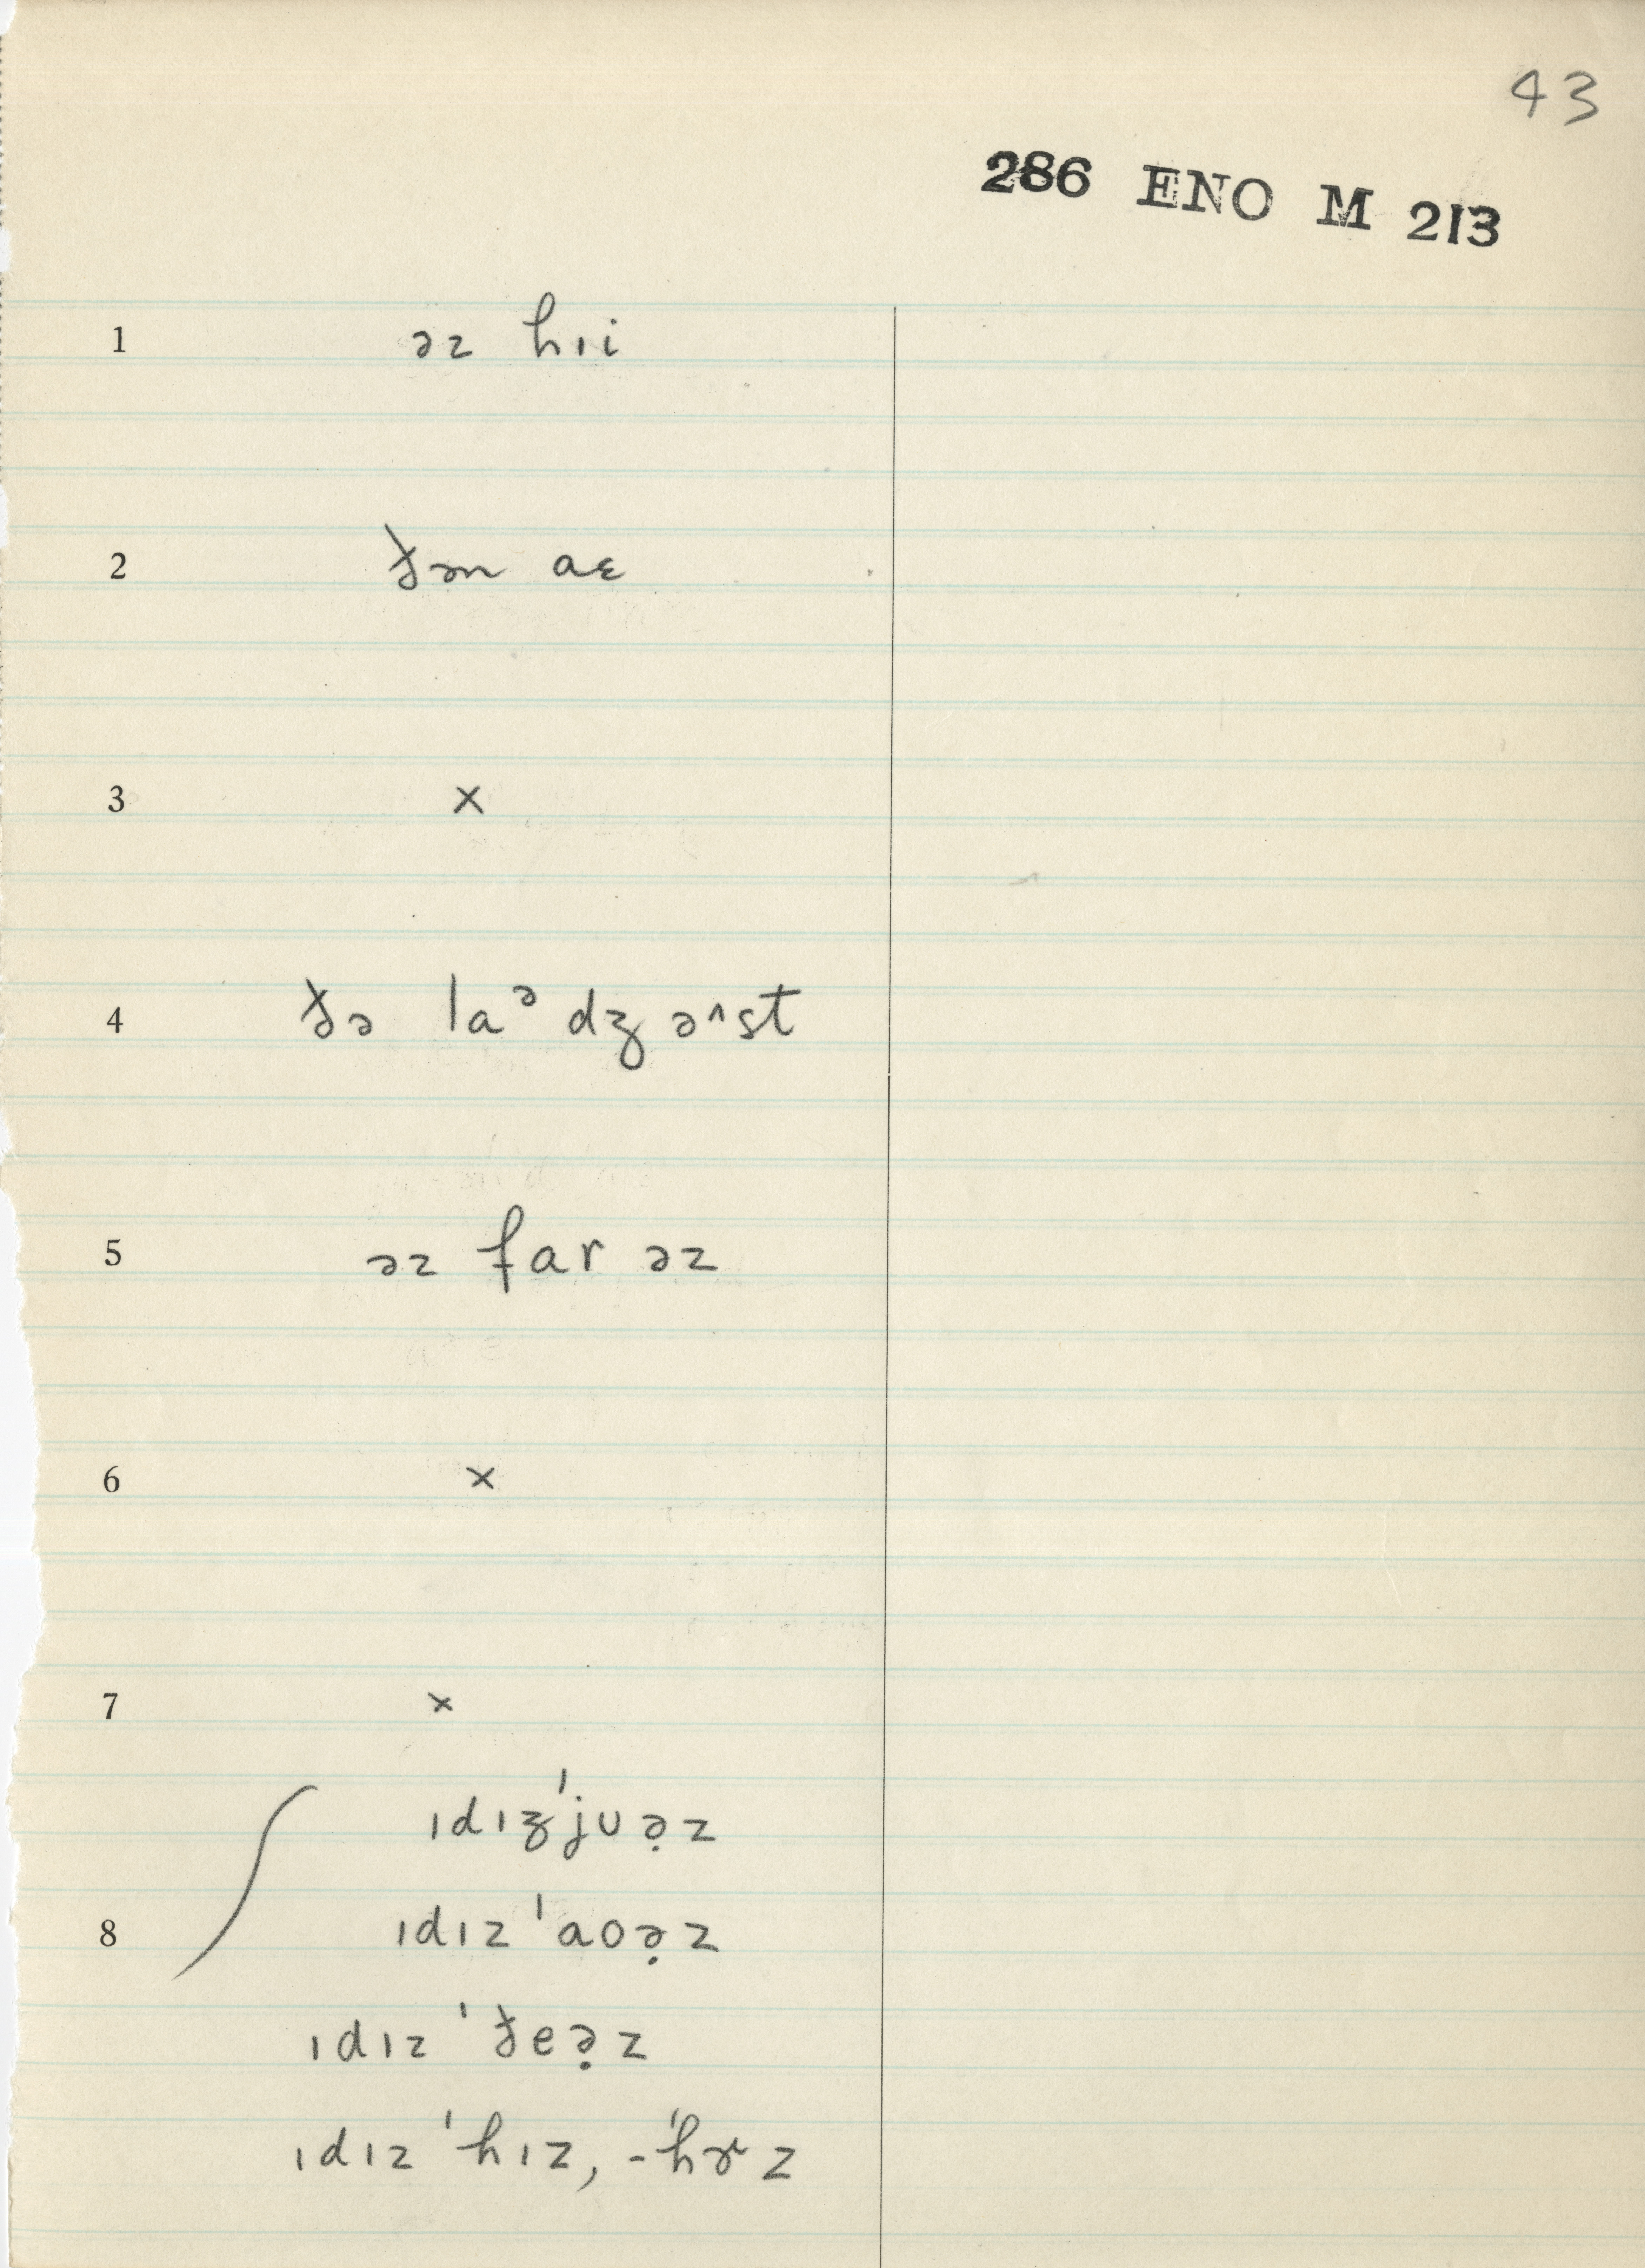 43
286 ENO M 213
1 əz hɪi
2 ðən aɛ
3 ×
4 ðə laᵊdʒəʌst
5 əz far əz
6 ×
7 ×
ɪdɪʒ'juə̣z
8 ɪdɪz 'aoə̣z
ɪdɪz 'ðeə̣z
ɪdɪz 'hɪz, -'hɚz